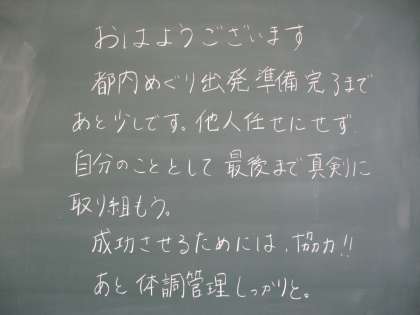 おはようございます
都内めぐり出発準備完了まで
あと少しです。他人任せにせず
自分のこととして最後まで真剣に
取り組もう。
成功させるためには、協力!!
あと体調管理しっかりと。